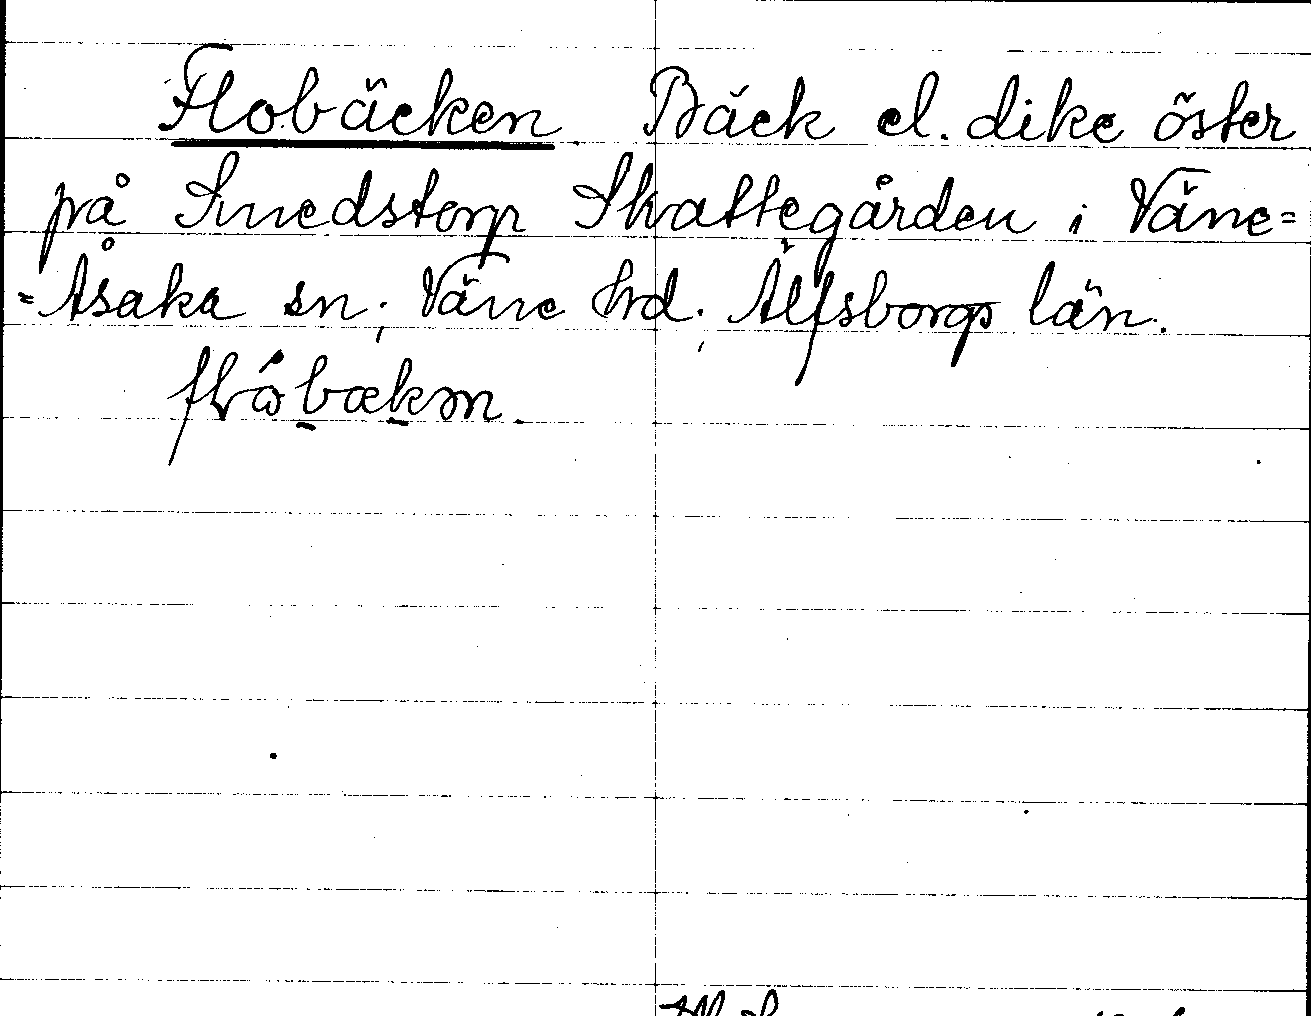 Flobäcken Bäck el. dike öster
på Smedstorp Skattegården i Väne=
=Åsaka sn; Väne hrd; Älfsborgs län.